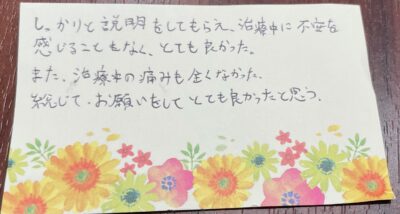 しっかりと説明をしてもらえ、治療中に不安を
感じることもなく、とても良かった。
また、治療中の痛みも全くなかった。
総じて、お願いをしてとても良かったと思う。